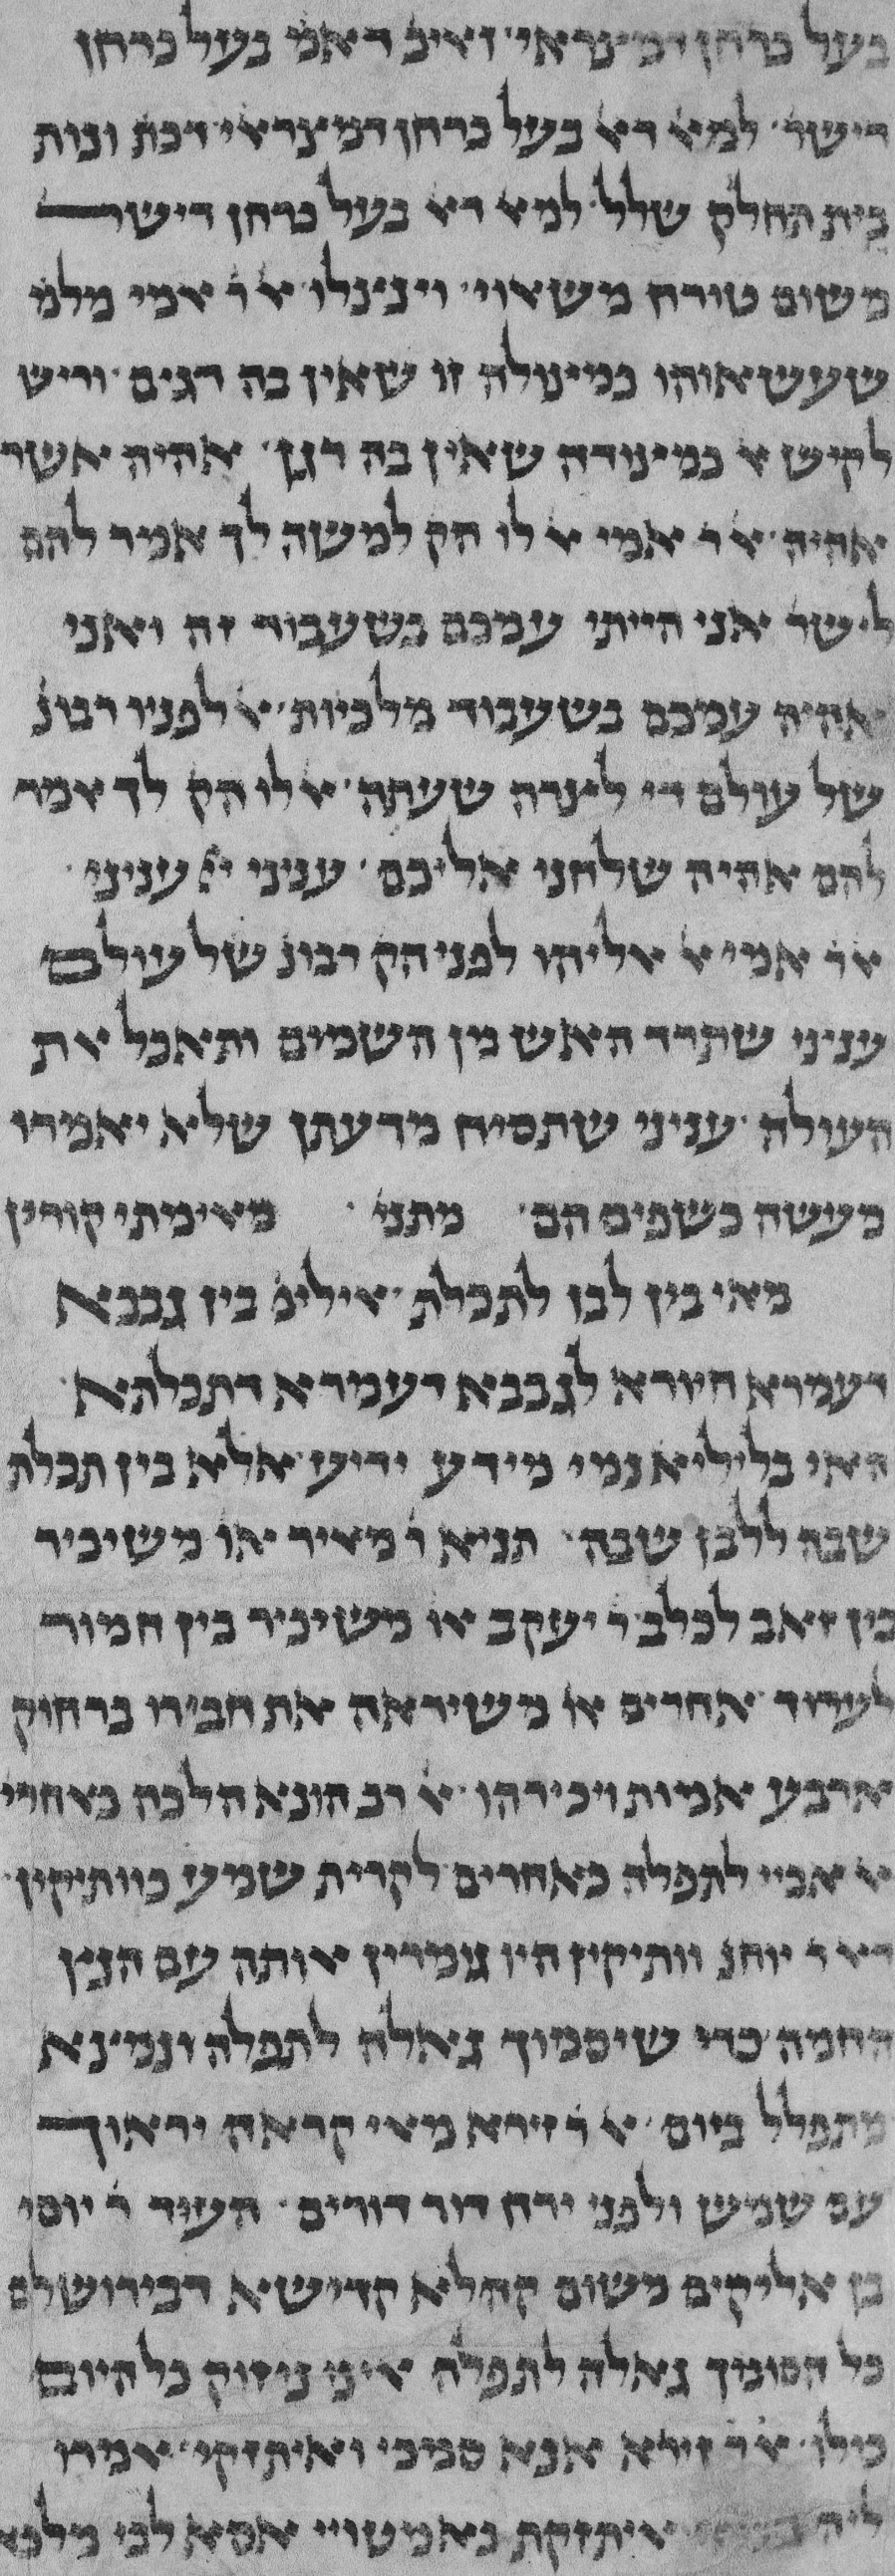 בעל כרחן דמצראי׳ ואיכ דאמ בעל כרחן
דישר׳ למא דא בעל כרחן דמצראי דכת ונות
בית תחלק שלל׳ למא דא בעל כרחן דישר
משום טורח משאוי׳ וינצלו א ר אמי מלמ
שעשאוהו כמצולה זו שאין בה דגים׳ וריש
לקיש א כמצודה שאין בה דגן׳ אהיה אשר
אהיה׳ א ר אמי א לו הק למשה לך אמר להם
לישר אני הייתי עמכם בשעבוד זה ואני
אהיה עמכם בשעבוד מלכיות׳ א לפניו רבונ
של עולם דיי לצרה שעתה׳ א לו הק לך אמר
להם אהיה שלחני אליכם׳ ענני ייי ענני׳
א ר אמי א אליהו לפני הק רבונ של עולם
ענני שתרד האש מן השמים ותאכל את
העולה׳ ענני שתסיח מדעתן שלא יאמרו
מעשה כשפים הם׳ מתני׳ מאימתי קורין
מאי בין לבן לתכלת׳ אילימ בין גבבא
דעמרא חיורא לגבבא דעמרא דתכלתא׳
האי בליליא נמי מידע ידיע׳ אלא בין תכלת
שבה ללבן שבה׳ תניא ר מאיר או משיכיר
בין זאב לכלב ר יעקב או משיכיר בין חמור
לערוד׳ אחרים או משיראה את חבירו ברחוק
ארבע אמות ויכירהו׳ א רב הונא הלכה כאחרי
א אביי לתפלה כאחרים לקרית שמע כוותיקין׳
דא ר יוחנ וותיקין היו גומרין אותה עם הנץ
החמה כדי שיסמוך גאלה לתפלה ונמצא
מתפלל ביום׳ א ר זירא מאי קראה יראוך
עם שמש ולפני ירח דור דורים׳ העיד ר יוסי
בן אליקים משום קהלא קדישא דבירושלם
כל הסומך גאלה לתפלה אינו ניזוק כל היום
כולו׳ א ר זירא אנא סמכי ואיתזקי׳ אמרו
ליה איתזקת באמטויי אסא לבי מלכא